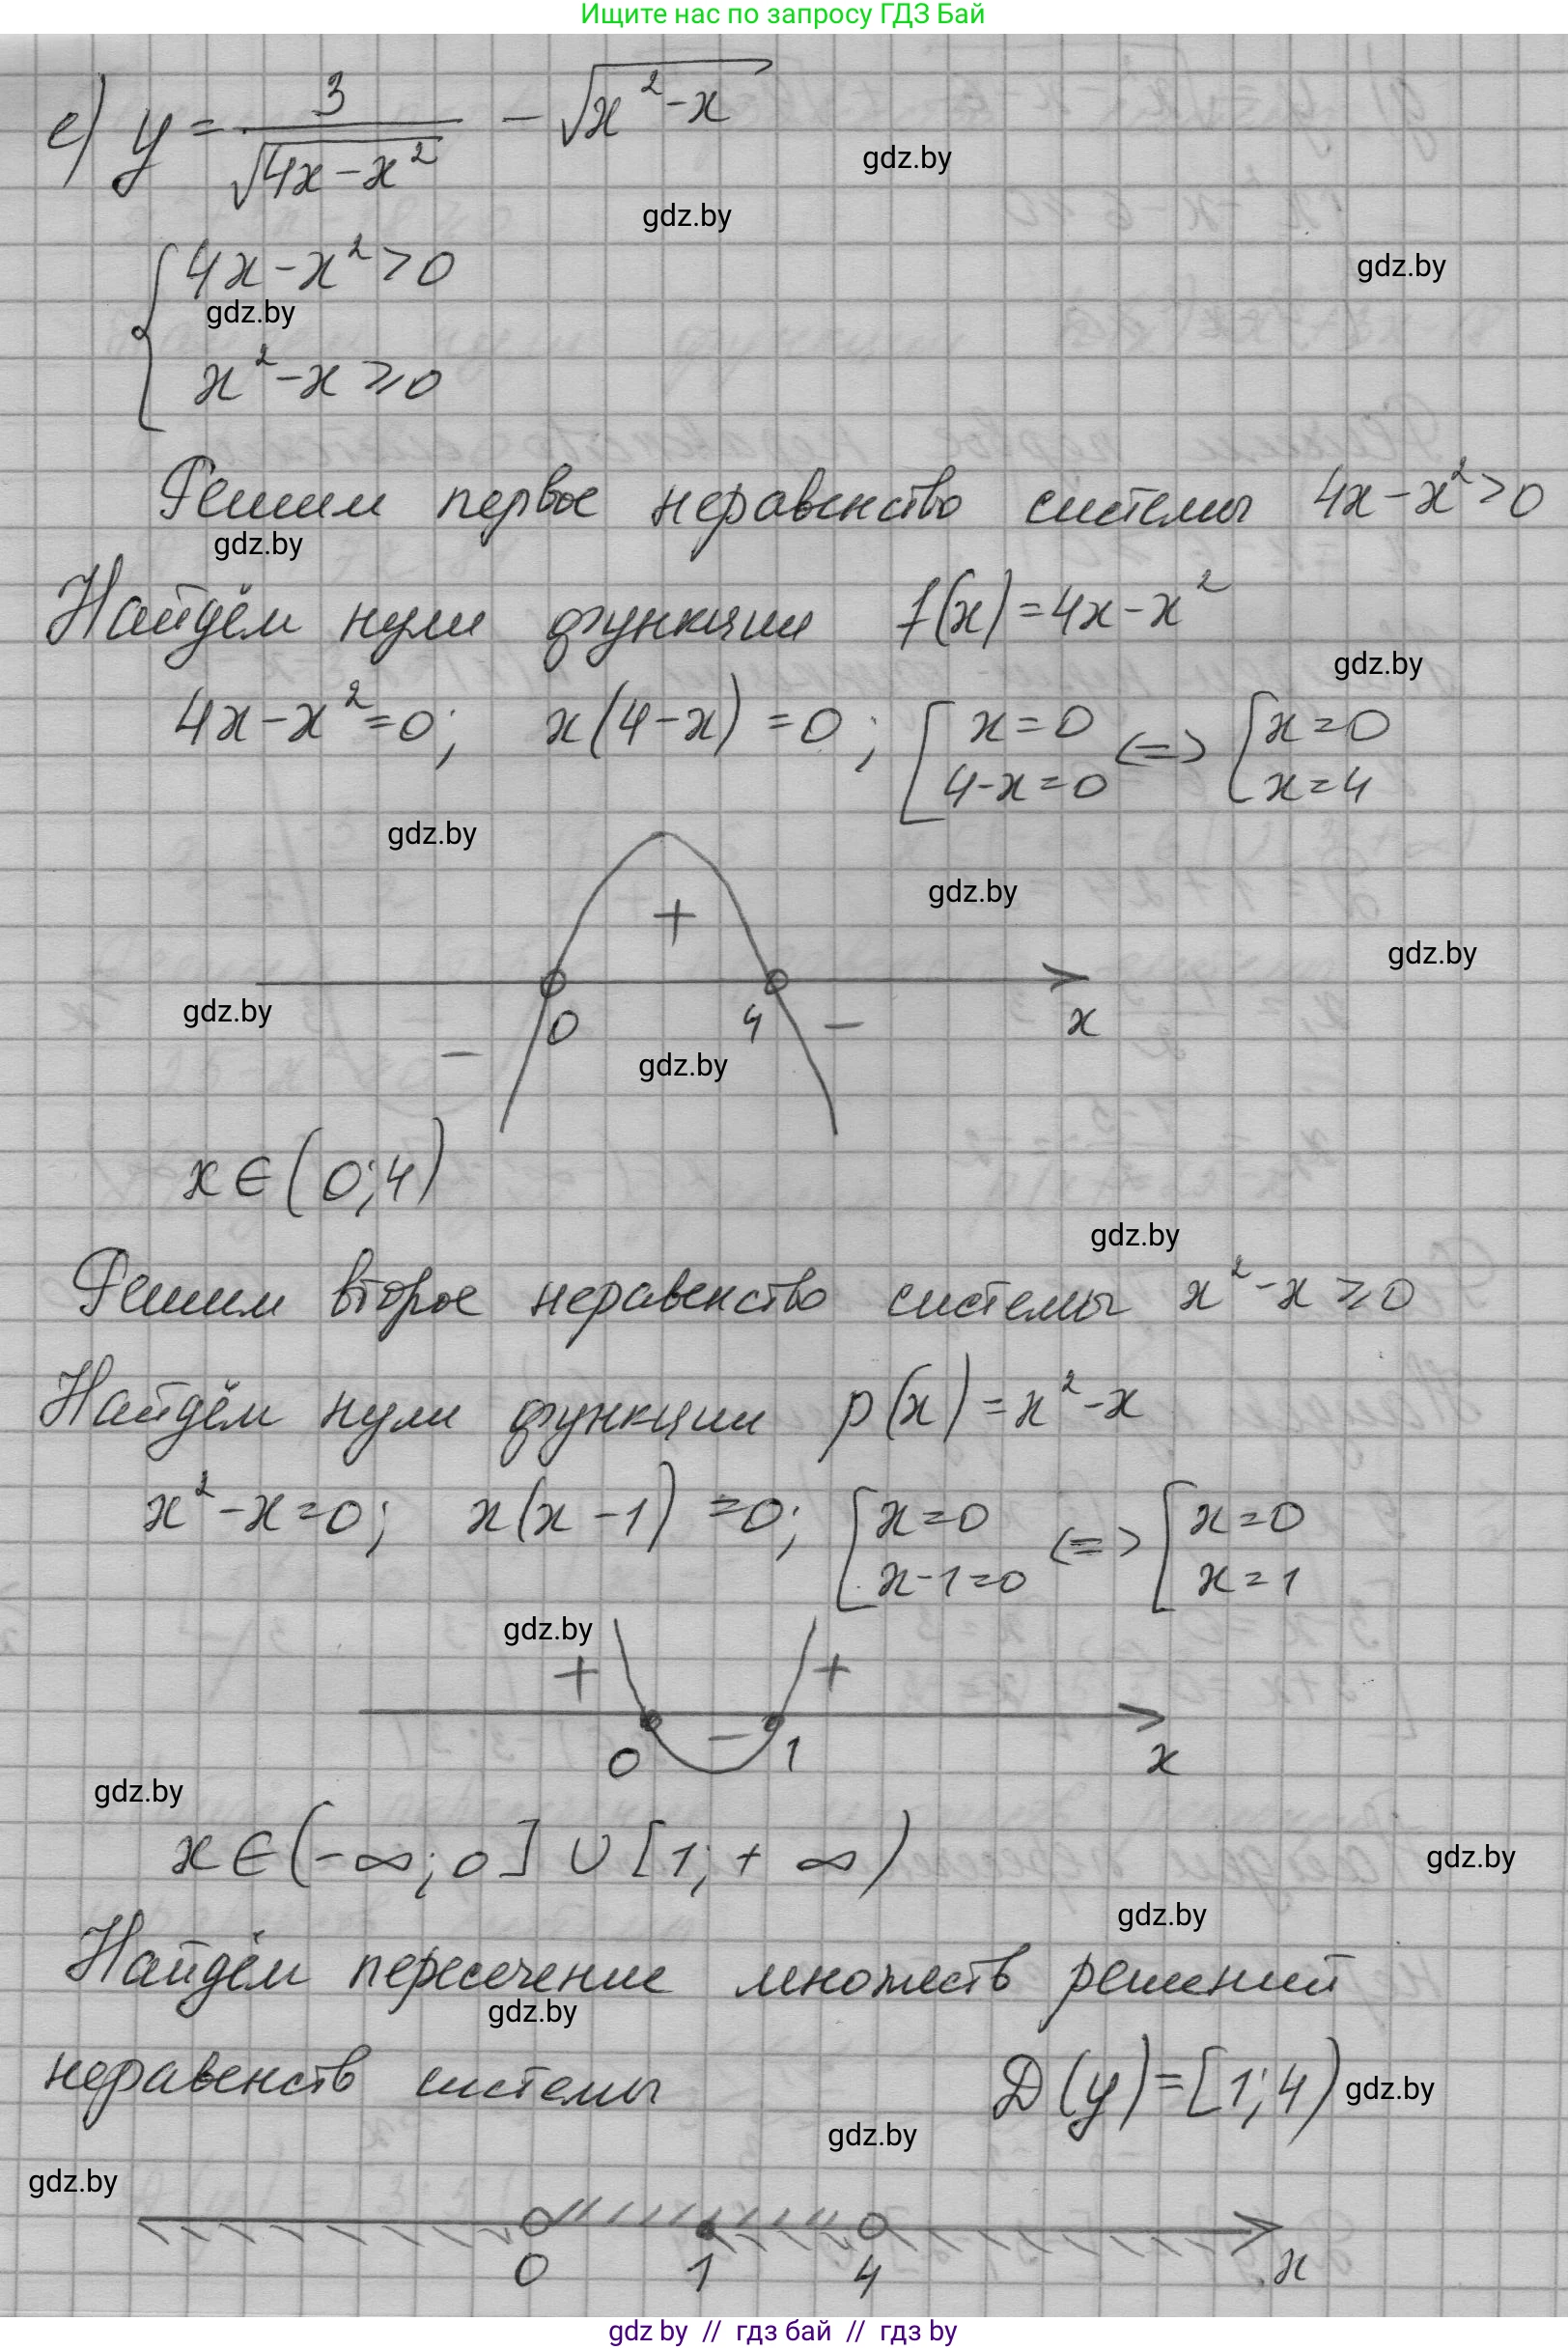 Ищите нас по запросу ГДЗ Бай
е) y = 3/√(4x-x²) - √(x²-x)
gdz.by
gdz.by
{ 4x-x²>0
gdz.by
gdz.by
x²-x≥0
Решим первое неравенство системы 4x-x²>0
gdz.by
Найдём нули функции f(x)=4x-x²
gdz.by
4x-x²=0; x(4-x)=0; [ x=0 <=> [ x=0
4-x=0 x=4
gdz.by
gdz.by
+
gdz.by
gdz.by
0 4 - x
-
gdz.by
x∈(0;4)
gdz.by
Решим второе неравенство системы x²-x≥0
Найдём нули функции p(x)=x²-x
x²-x=0; x(x-1)=0; [ x=0 <=> [ x=0
x-1=0 x=1
gdz.by
+ +
-
0 1 x
gdz.by
x∈(-∞;0]∪[1;+∞)
gdz.by
gdz.by
Найдём пересечение множеств решений
gdz.by
неравенств системы D(y)=[1;4)
gdz.by
gdz.by
gdz.by
0 1 4 x
gdz by // гдз бай // гдз by